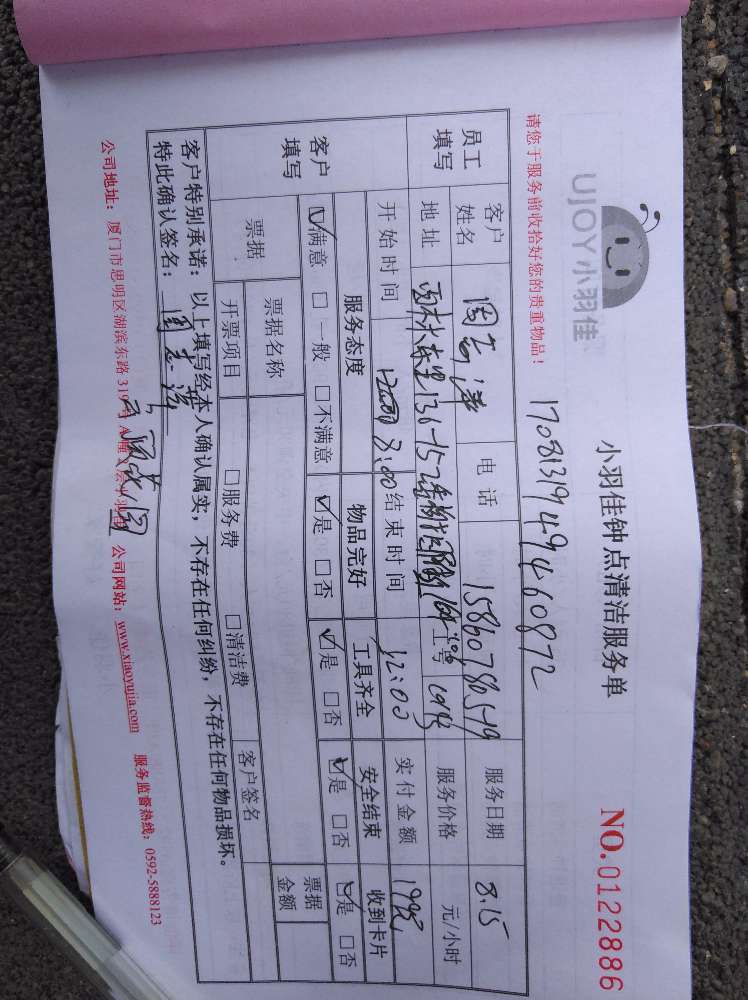 UJOY小羽佳
小羽佳钟点清洁服务单
NO.0122886
请您于服务前收拾好您的贵重物品!
1708131949460872
员工填写
客户姓名
电话
服务日期 8.15
地址
工号
服务价格 元/小时
开始时间
结束时间 12:00
实付金额
客户填写
服务态度 物品完好 工具齐全 安全结束 收到卡片
☑满意 □一般 □不满意 ☑是 □否 ☑是 □否 ☑是 □否 ☑是 □否
票据 票据名称 票据金额
开票项目 □服务费 □清洁费 客户签名
客户特别承诺:以上填写经本人确认属实,不存在任何纠纷,不存在任何物品损坏。
特此确认签名:
公司地址:厦门市思明区湖滨东路 公司网站:www.xiaoyujia.com 服务监督热线:0592-5888123